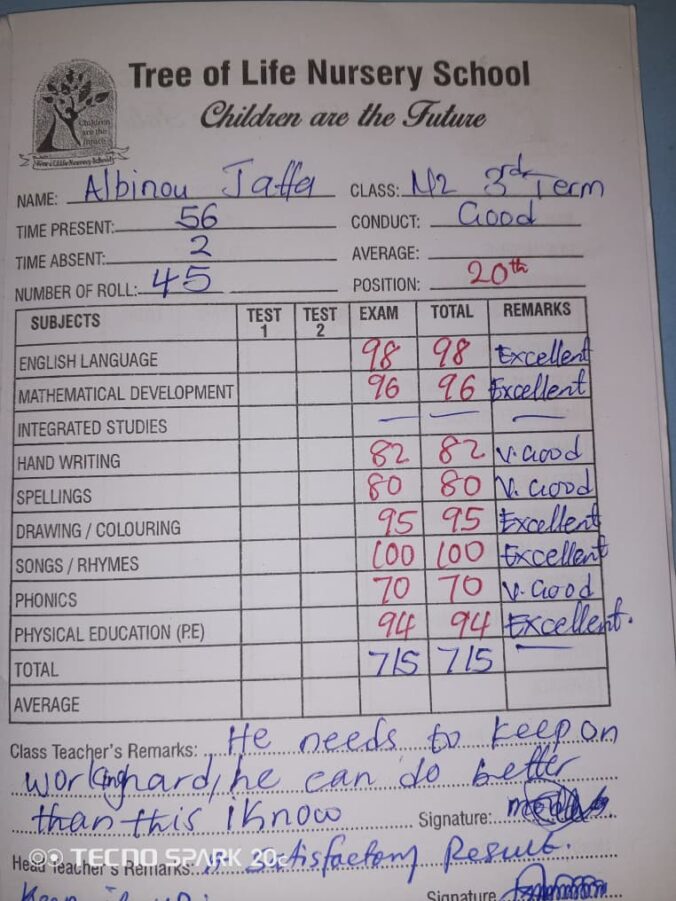 Tree of Life Nursery School
Children are the Future
Children
are the
future
Tree of Life Nursery School
NAME: Albinou Jaffa CLASS: N2 3rd Term
TIME PRESENT: 56 CONDUCT: Good
TIME ABSENT: 2 AVERAGE:
NUMBER OF ROLL: 45 POSITION: 20th
SUBJECTS TEST 1 TEST 2 EXAM TOTAL REMARKS
ENGLISH LANGUAGE 98 98 Excellent
MATHEMATICAL DEVELOPMENT 96 96 Excellent
INTEGRATED STUDIES — — —
HAND WRITING 82 82 V. Good
SPELLINGS 80 80 V. Good
DRAWING / COLOURING 95 95 Excellent
SONGS / RHYMES 100 100 Excellent
PHONICS 70 70 V. Good
PHYSICAL EDUCATION (P.E) 94 94 Excellent.
TOTAL 715 715 —
AVERAGE
Class Teacher's Remarks: He needs to keep on
working hard, he can do better
than this i know Signature:
Head Teacher's Remarks: A Satisfactory Result.
Keep it up Signature
TECNO SPARK 20C